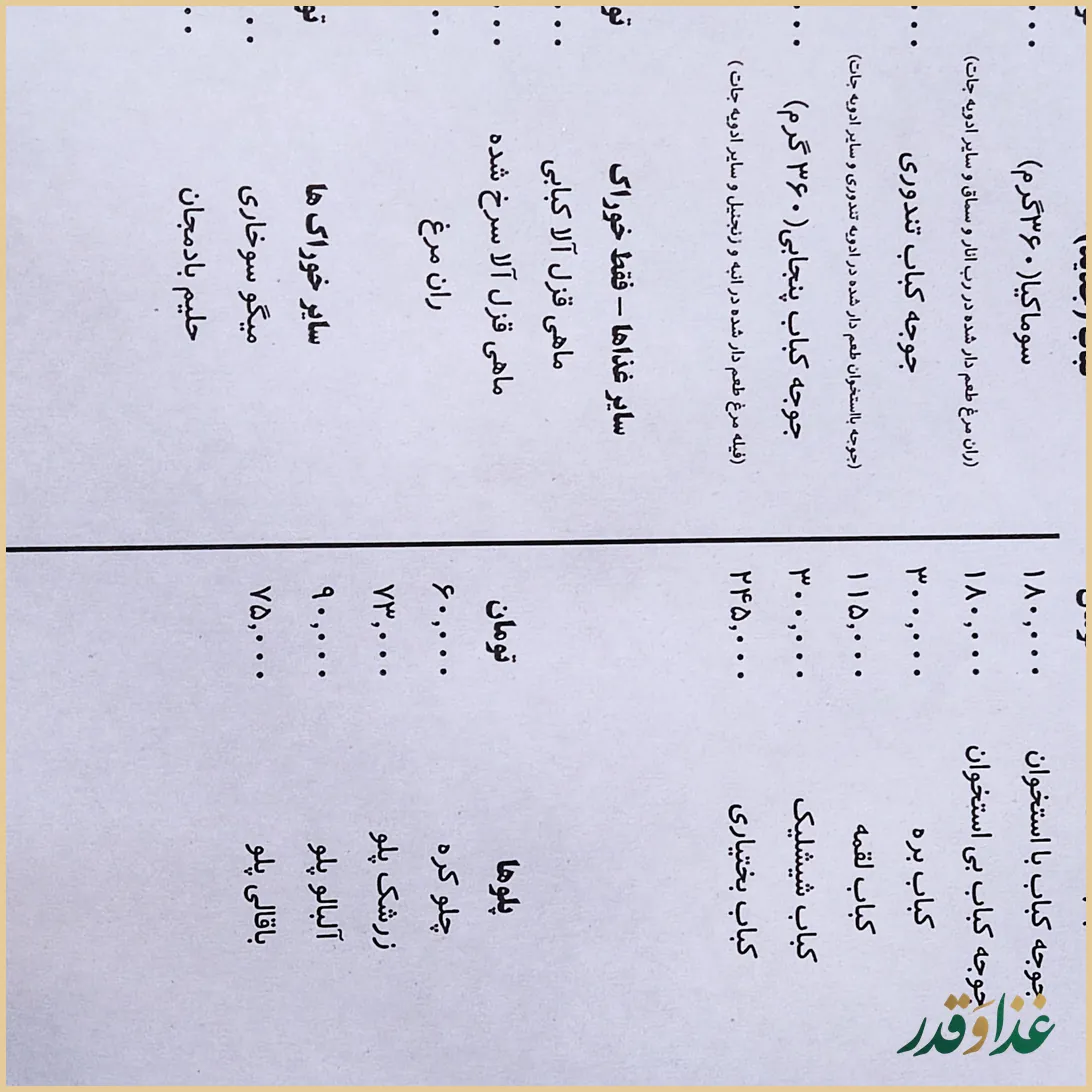 جوجه کباب با استخوان ۱۸۰,۰۰۰
جوجه کباب بی استخوان ۱۸۰,۰۰۰
کباب بره ۳۰۰,۰۰۰
کباب لقمه ۱۱۵,۰۰۰
کباب شیشلیک ۳۰۰,۰۰۰
کباب بختیاری ۲۴۵,۰۰۰
پلوها تومان
چلو کره ۶۰,۰۰۰
زرشک پلو ۷۳,۰۰۰
آلبالو پلو ۹۰,۰۰۰
باقالی پلو ۷۵,۰۰۰
سوماکیا(۳۶۰گرم)
(ران مرغ طعم دار شده در رب انار و سماق و سایر ادویه جات)
جوجه کباب تندوری
(جوجه بااستخوان طعم دار شده در ادویه تندوری و سایر ادویه جات)
جوجه کباب پنجابی(۳۶۰ گرم)
(فیله مرغ طعم دار شده در انبه و زنجبیل و سایر ادویه جات )
سایر غذاها – فقط خوراک
ماهی قزل آلا کبابی
ماهی قزل آلا سرخ شده
ران مرغ
سایر خوراک ها
میگو سوخاری
حلیم بادمجان
غذا و قدر